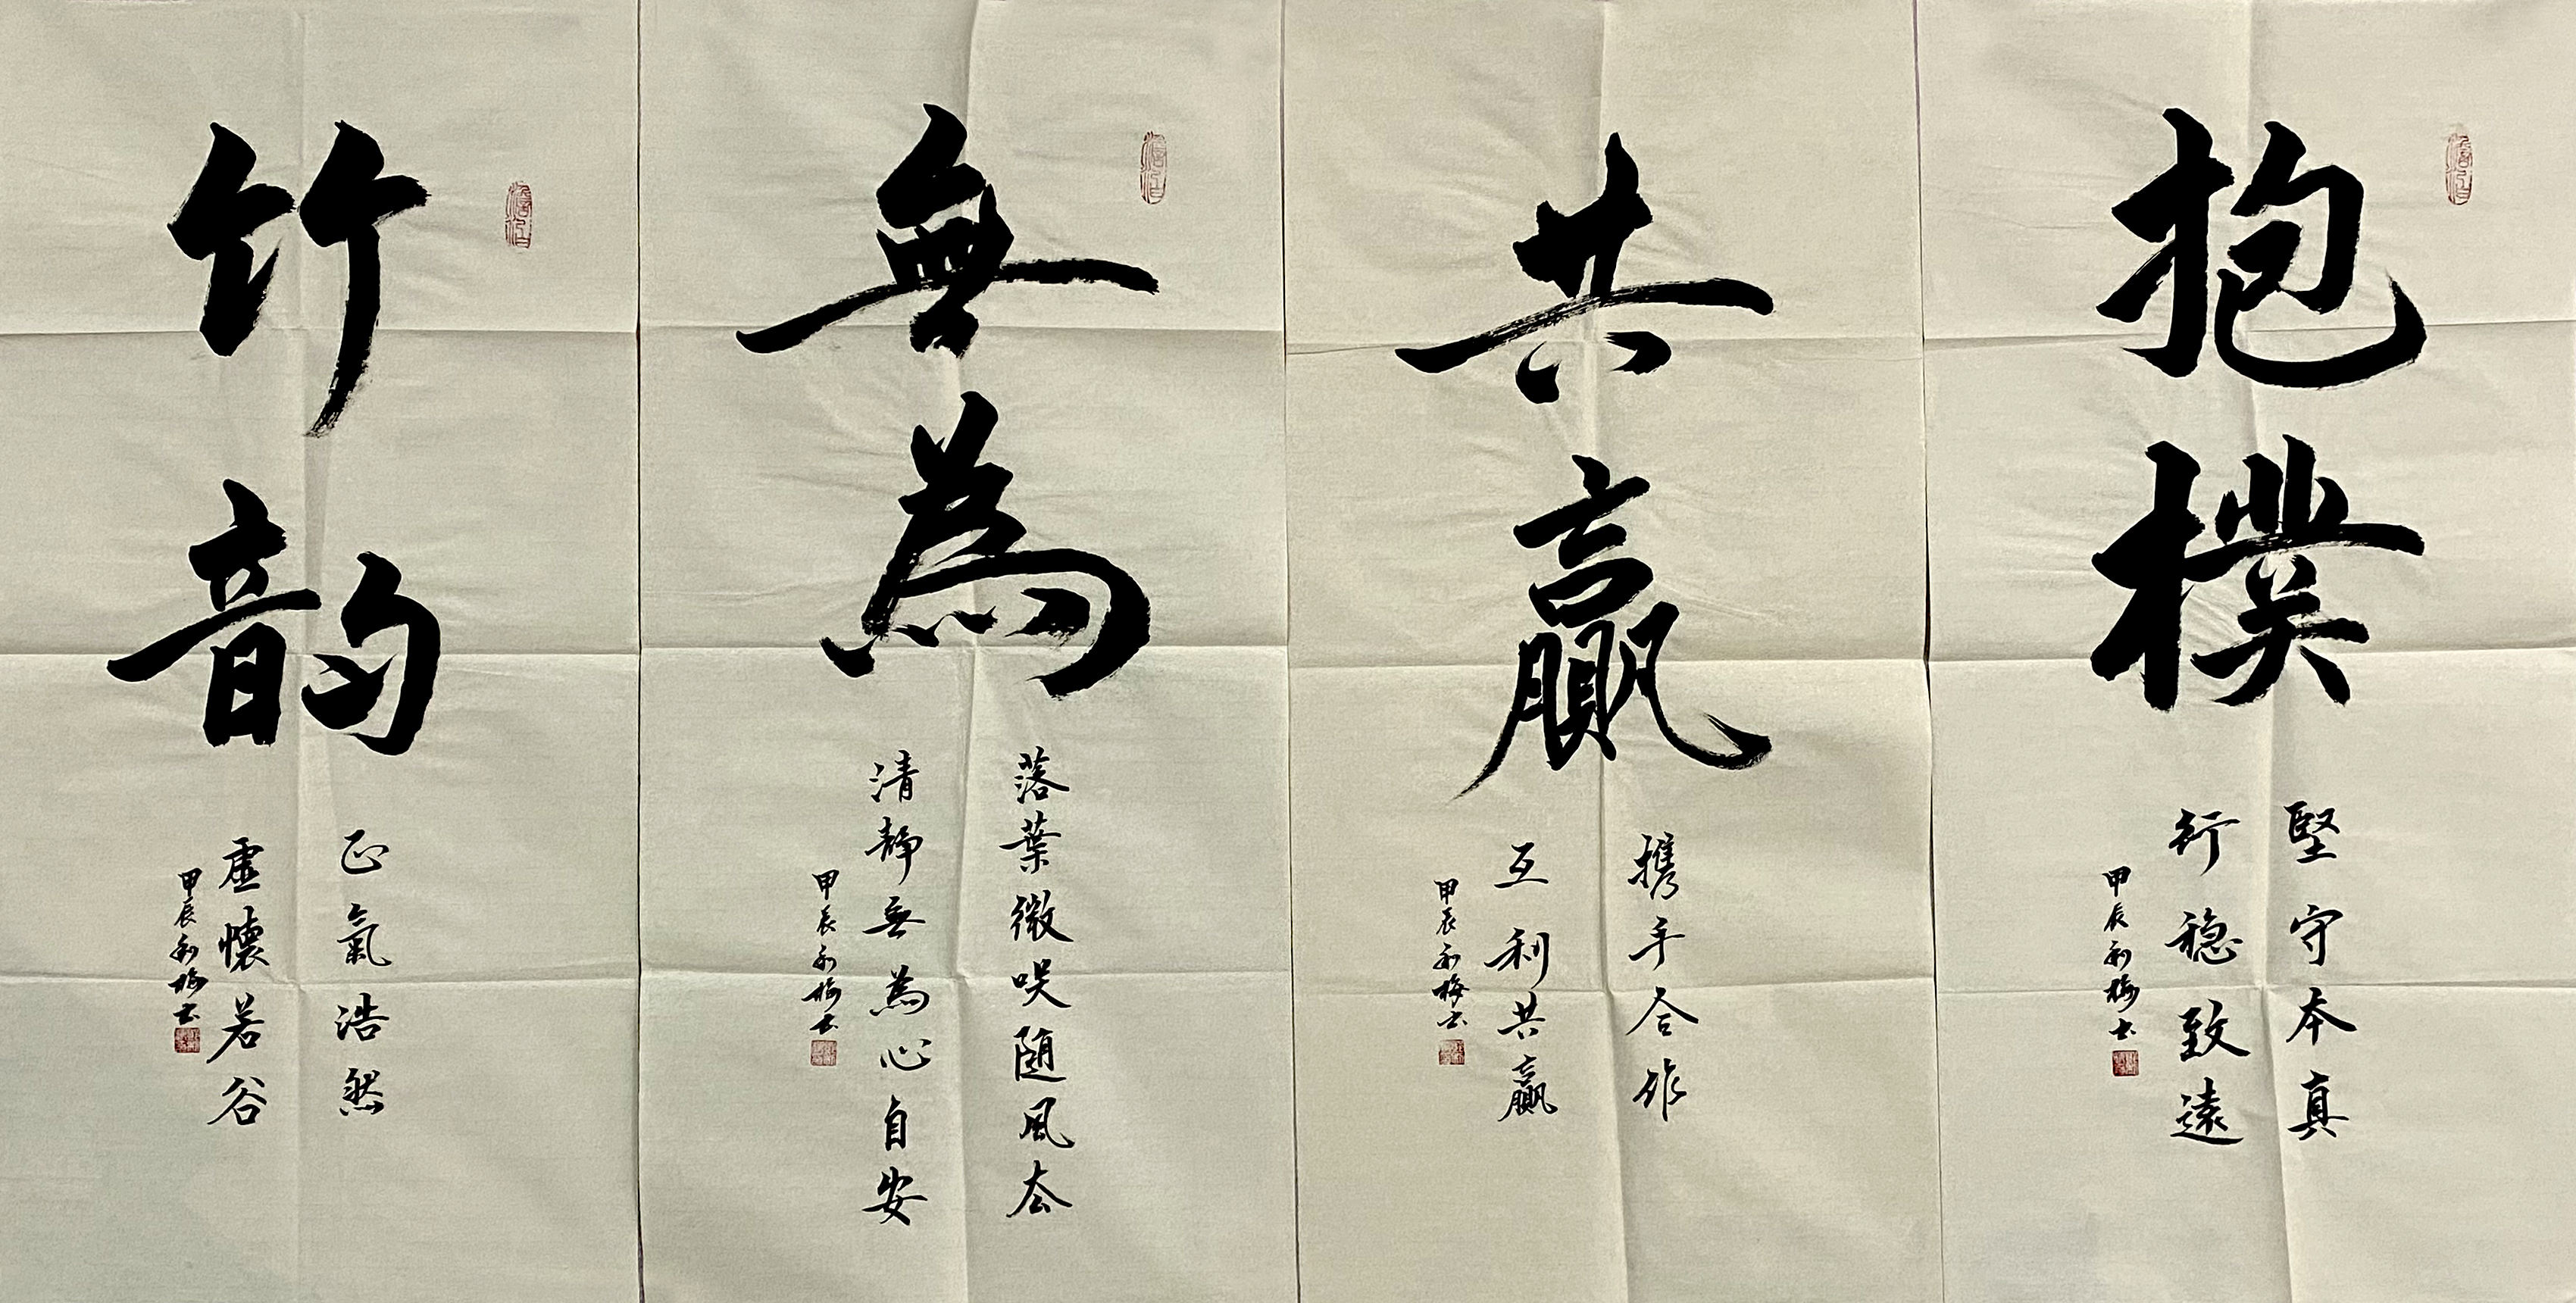 抱樸
堅守本真
行穏致遠
甲辰利梅书
共贏
携手合作
互利共贏
甲辰利梅书
無為
落葉微咲随風去
清静無為心自安
甲辰利梅书
竹韵
正氣浩然
虚懷若谷
甲辰利梅书